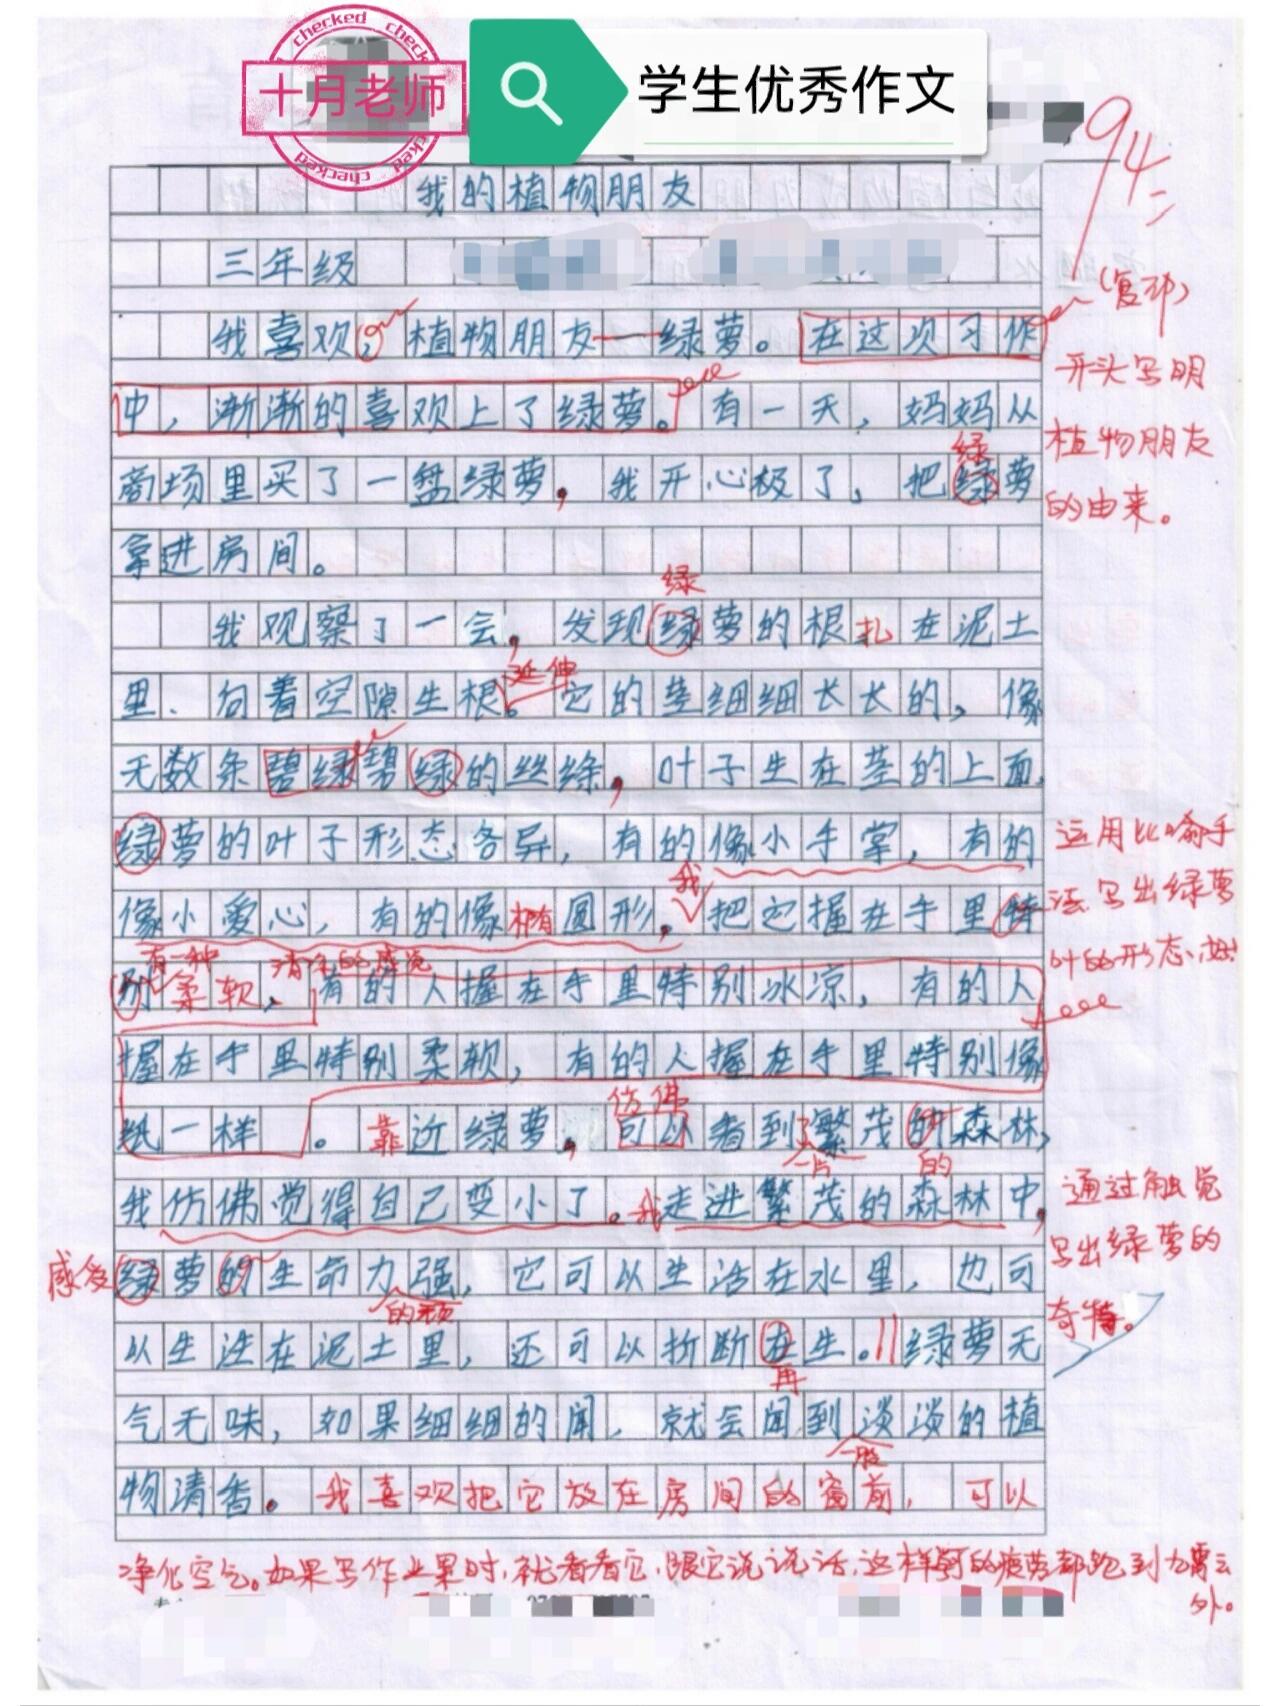 checked checked
十月老师
checked checked
学生优秀作文
94
我的植物朋友
三年级
(复印)
我喜欢,植物朋友——绿萝。在这次习作
开头写明
中,渐渐的喜欢上了绿萝。有一天,妈妈从
植物朋友
绿
商场里买了一盘绿萝,我开心极了,把绿萝
的由来。
拿进房间。
绿
我观察了一会,发现绿萝的根扎在泥土
延伸
里、向着空隙生根。它的茎细细长长的,像
无数条碧绿碧绿的丝绦,叶子生在茎的上面,
绿萝的叶子形态各异,有的像小手掌,有的
运用比喻手
我
像小爱心,有的像椭圆形,把它握在手里特
法写出绿萝
有一种 清凉的感觉
叶的形态,好!
别柔软,有的人握在手里特别冰凉,有的人
握在手里特别柔软,有的人握在手里特别像
仿佛
纸一样。靠近绿萝,可以看到了繁茂的森林,
一片 的
我仿佛觉得自己变小了。我走进繁茂的森林中,
通过触觉
写出绿萝的
奇特。
感受
绿萝的生命力强,它可以生活在水里,也可
的顽
以生活在泥土里,还可以折断在生。绿萝无
再
气无味,如果细细的闻,就会闻到淡淡的植
一股
物清香。我喜欢把它放在房间的窗前,可以
净化空气。如果写作业累时,就看看它,跟它说说话,这样我的疲劳都跑到九霄云
外。